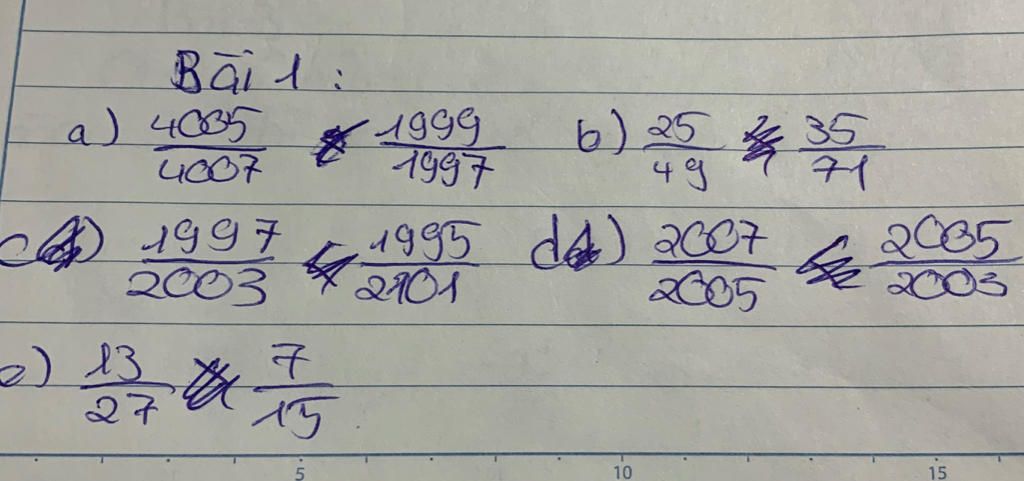 Bài 1 :
a) 4005/4007 1999/1997 b) 25/49 35/71
c) 1997/2003 1995/2101 d) 2007/2005 2005/2003
e) 13/27 7/15
5 10 15